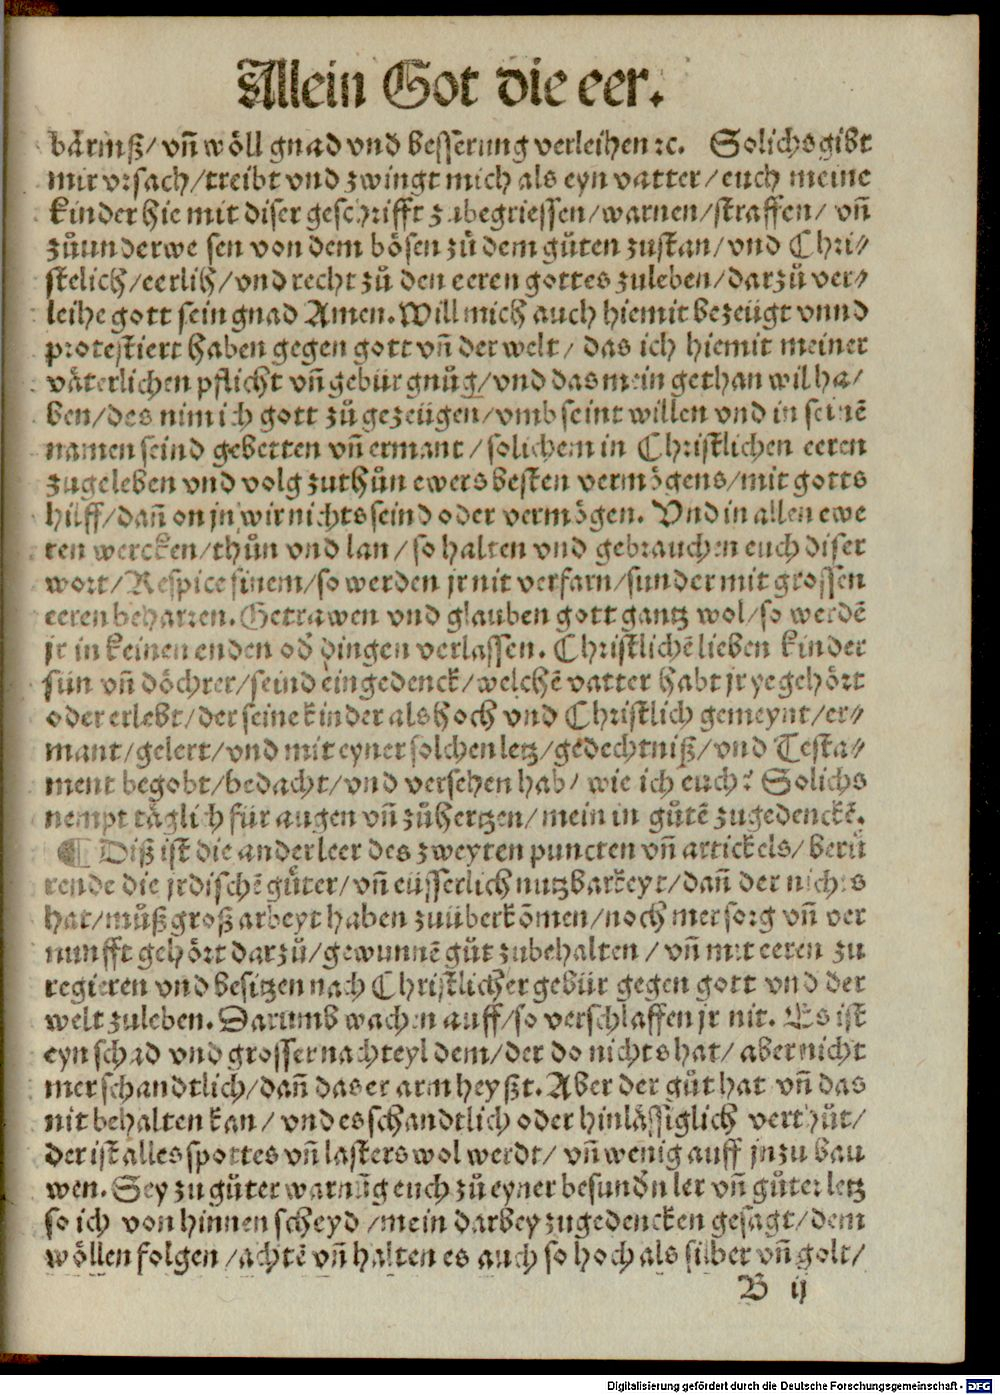 Allein Got die eer.
bärmß/ vñ wöll gnad vnd besserung verleihen ꝛc. Solichs gibt
mir vrsach/treibt vnd zwingt mich als eyn vatter/euch meine
kinder hie mit diser geschrifft zubegriessen/warnen/straffen/ vñ
zůunderwe sen von dem bösen zů dem gůten zustan/vnd Chri⸗
stelich/eerlih/vnd recht zů den eeren gottes zuleben/darzů ver⸗
leihe gott sein gnad Amen. Will mich auch hiemit bezeügt vnnd
protestiert haben gegen gott vñ der welt/ das ich hiemit meiner
väterlichen pflicht vñ gebür gnůg/vnd das mein gethan wil ha/
ben/des nim ich gott zů gezeügen/vmb seint willen vnd in seinē
namen seind gebetten vñ ermant/solichem in Christlichen eeren
zugeleben vnd volg zuthůn ewers besten vermögens/mit gotts
hilff/dañ on jn wir nichts seind oder vermögen. Vnd in allen ewe
ren wercken/thůn vnd lan/so halten vnd gebrauchen euch diser
wort/Respice finem/so werden jr nit verfarn/sunder mit grossen
eeren beharren. Getrawen vnd glauben gott gantz wol/so werdē
jr in keinen enden od̾ dingen verlassen. Christlichē lieben kinder
sün vñ döchter/seind eingedenck/welchē vatter habt jr ye gehört
oder erlebt/der seine kinder als hoch vnd Christlich gemeynt/er⸗
mant/gelert/vnd mit eyner solchen letz/gedechtniß/vnd Testa⸗
ment begobt/bedacht/vnd versehen hab/ wie ich euch? Solichs
nempt täglich für augen vñ zůhertzen/mein in gůtē zugedenckē.
¶ Diß ist die ander leer des zweyten puncten vñ artickels/ berů
rende die jrdischē gůter/vñ eüsserlich nutzbarkeyt/dañ der nichts
hat/můß groß arbeyt haben zuüberkōmen/noch mer sorg vñ ver
nunfft gehört darzů/gewunnē gůt zubehalten/ vñ mit eeren zu
regieren vnd besitzen nach Christlicher gebür gegen gott vnd der
welt zuleben. Darumb wachen auff/so verschlaffen jr nit. Es ist
eyn schad vnd grosser nachteyl dem/der do nichts hat/ aber nicht
mer schandtlich/dañ das er arm heyßt. Aber der gůt hat vñ das
nit behalten kan/ vnd es schandtlich oder hinlässiglich verthůt/
der ist alles spottes vñ lasters wol werdt/ vñ wenig auff jn zu bau
wen. Sey zu gůter warnūg euch zů eyner besundn̄ ler vñ gůter letz
so ich von hinnen scheyd/mein darbey zugedencken gesagt/dem
wöllen folgen/achtē vñ halten es auch so hoch als silber vñ golt/
B ij
Digitalisierung gefördert durch die Deutsche Forschungsgemeinschaft - DFG